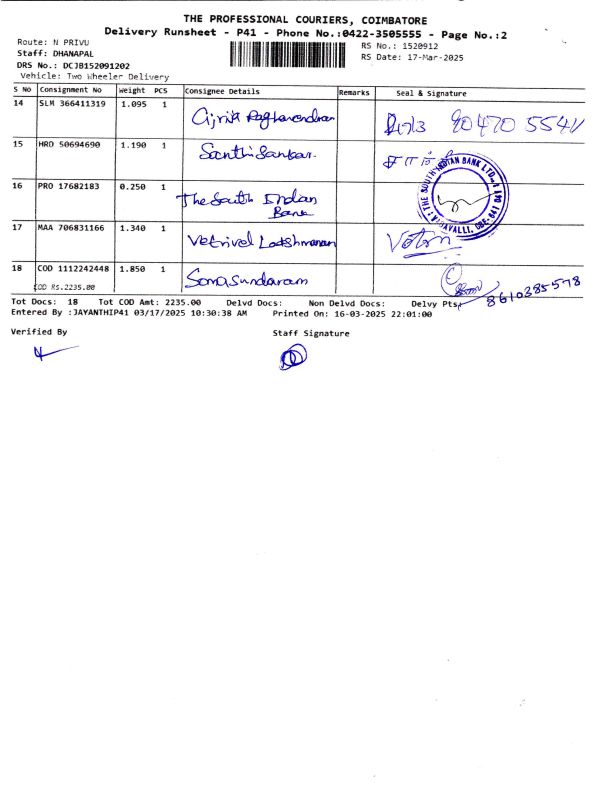 THE PROFESSIONAL COURIERS, COIMBATORE
Delivery Runsheet - P41 - Phone No.:0422-3505555 - Page No.:2
Route: N PRIVU
Staff: DHANAPAL
DRS No.: DCJB152091202
Vehicle: Two Wheeler Delivery
RS No.: 1520912
RS Date: 17-Mar-2025
S No Consignment No Weight PCS Consignee Details Remarks Seal & Signature
14 SLM 366411319 1.095 1 Raghavendran 90470 5541
15 HRO 50694690 1.190 1 Santhi Sankar.
16 PRO 17682183 0.250 1 The South Indian Bank
THE SOUTH INDIAN BANK LTD.
17 MAA 706831166 1.340 1 Vetrivel Lakshmanan
18 COD 1112242448 1.850 1 Somasundaram 8610385578
COD RS.2235.00
Tot Docs: 18 Tot COD Amt: 2235.00 Delvd Docs: Non Delvd Docs: Delvy Pts:
Entered By :JAYANTHIP41 03/17/2025 10:30:38 AM Printed On: 16-03-2025 22:01:00
Verified By Staff Signature